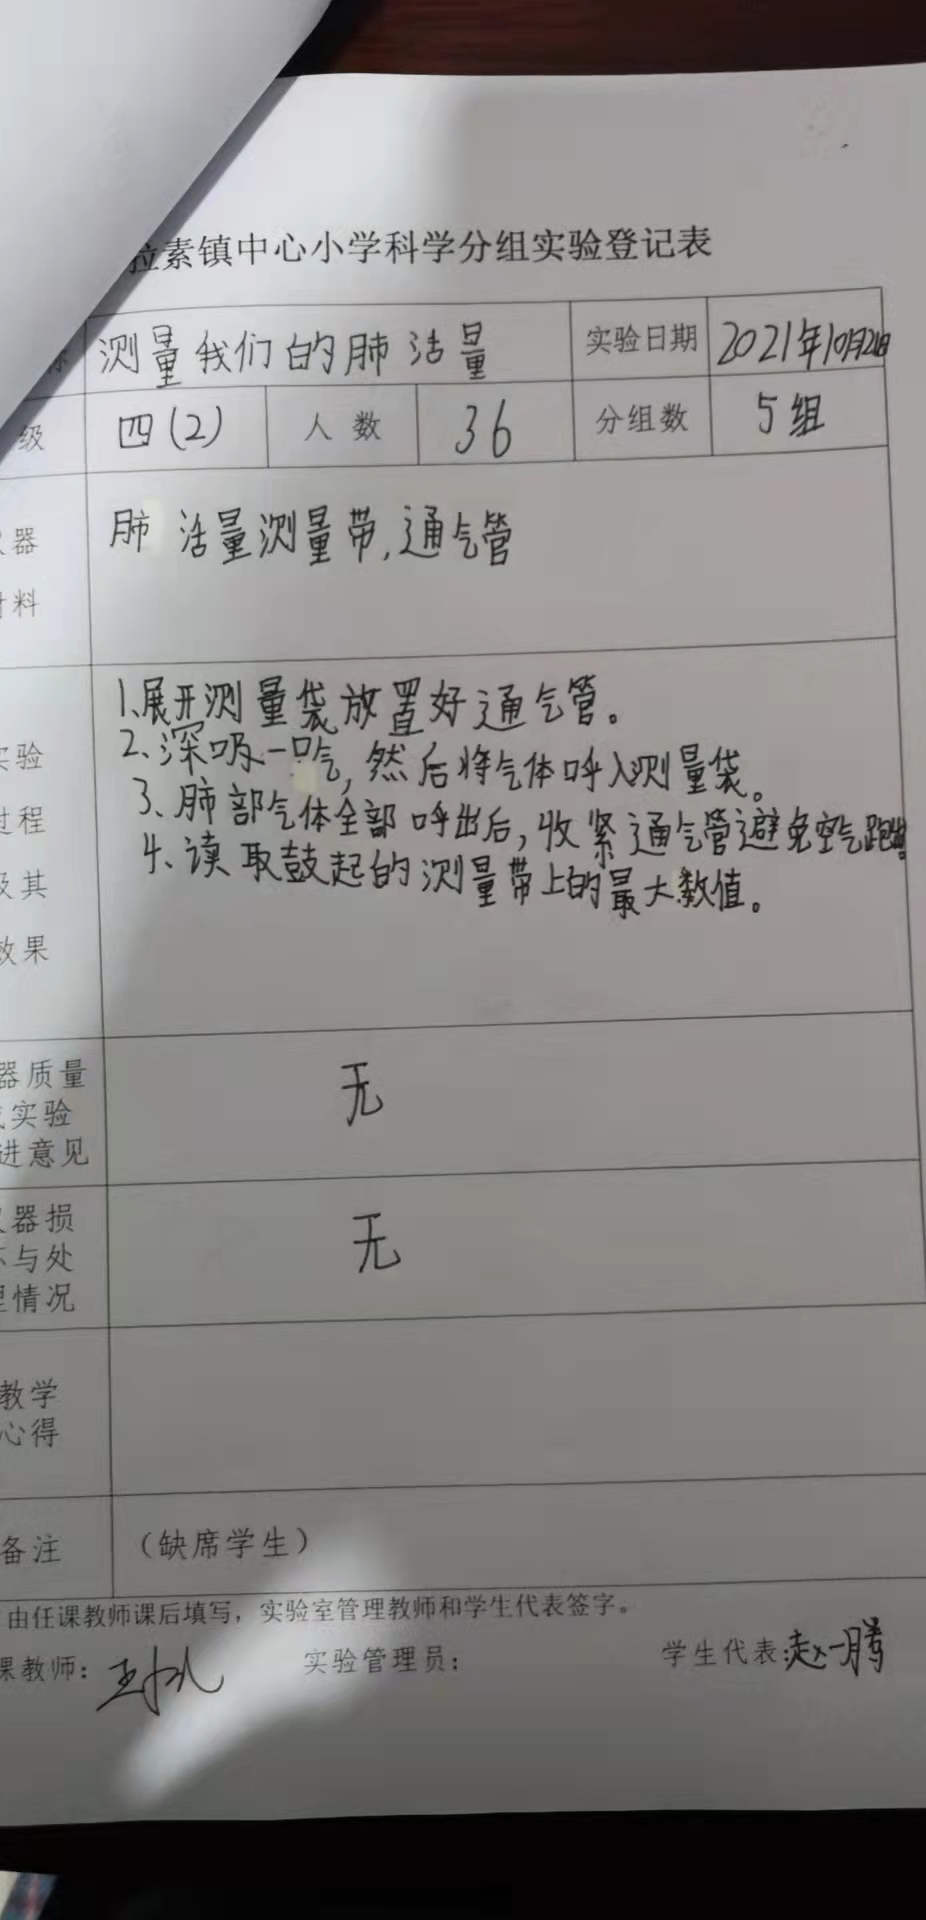 拉素镇中心小学科学分组实验登记表
测量我们的肺活量 实验日期 2021年10月
级 四(2) 人数 36 分组数 5组
器 肺活量测量带,通气管
料
1、展开测量袋放置好通气管。
2、深吸一口气,然后将气体呼入测量袋。
实验
3、肺部气体全部呼出后,收紧通气管避免空气跑出。
过程
4、读取鼓起的测量带上的最大数值。
及其
效果
器质量
实验 无
进意见
器损
与处 无
情况
教学
心得
备注 (缺席学生)
由任课教师课后填写,实验室管理教师和学生代表签字。
课教师: 实验管理员: 学生代表:赵一腾